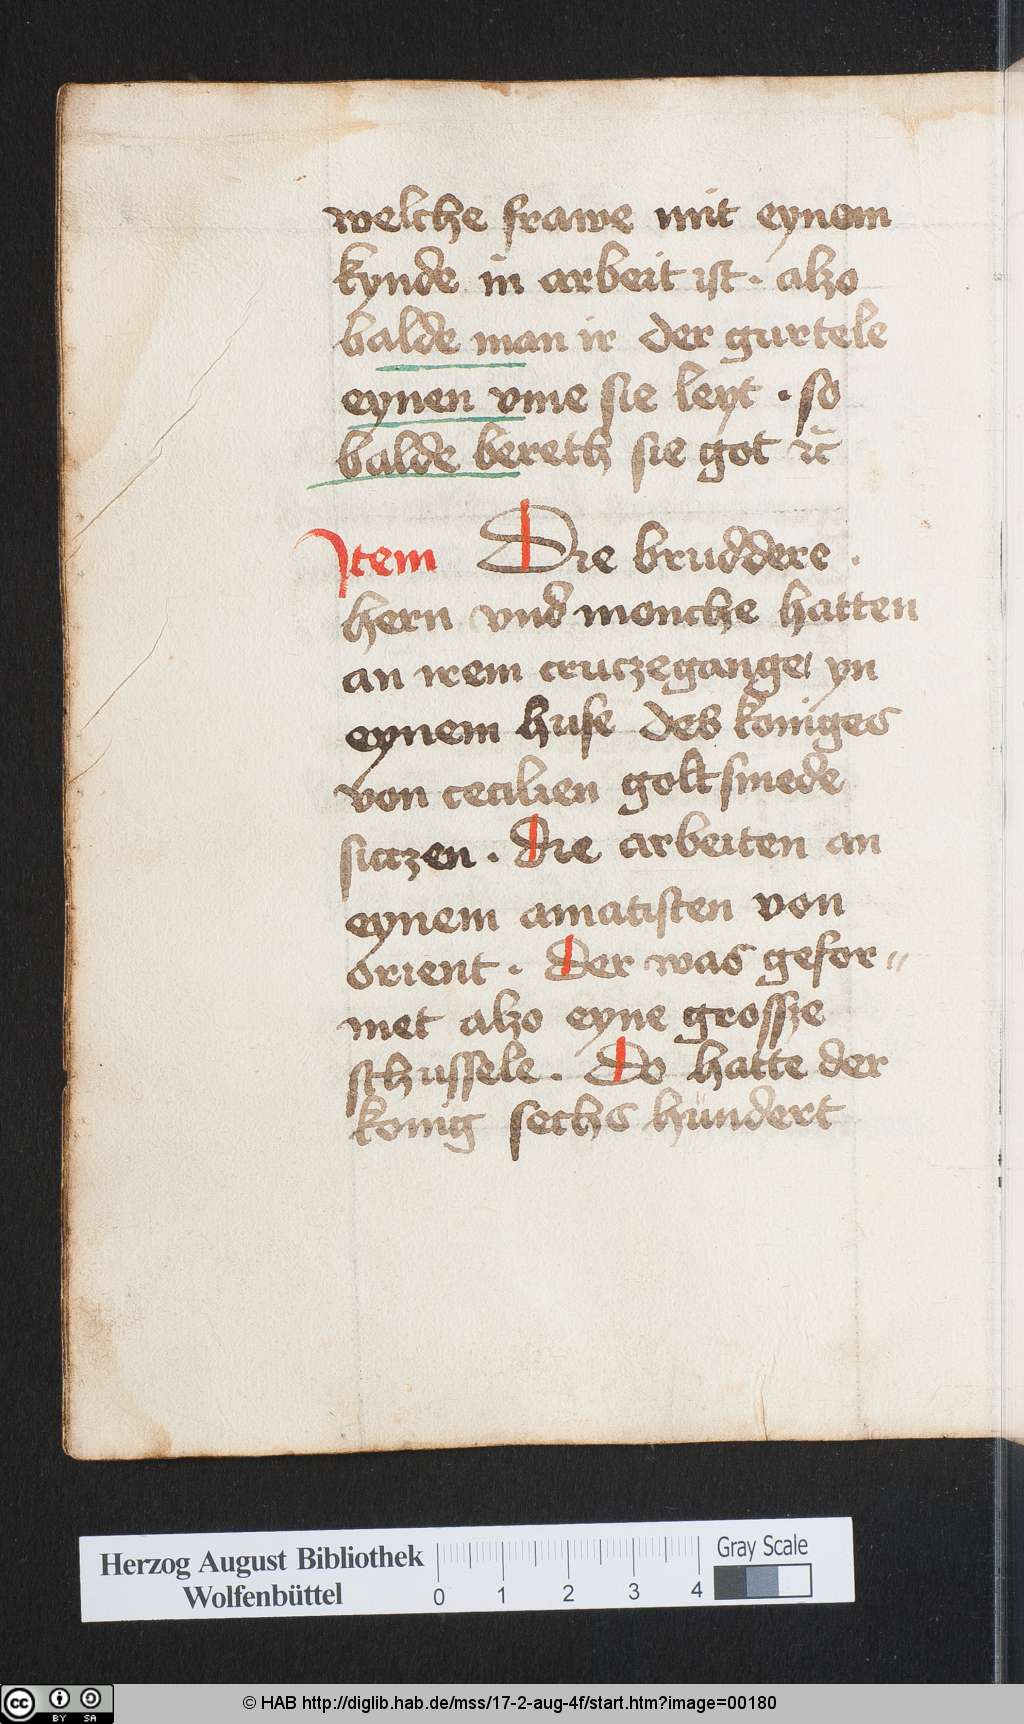 welche frawe mit eynem
kynde in arbeit ist · alzo
balde man ir der gurtele
eynen vme sie leyt · so
balde bereth sie got ꝛc̄
Item Die bruddere ·
hern vnd monche hatten
an irem crutzegange yn
eynem huse des koniges
von cecilien goltsmede
sittzen · die arbeiten an
eynem amatisten von
orient · der was gefor〃
met alzo eyne grossze
schussele · Do hatte der
konig sechs hundert
Herzog August Bibliothek
Wolfenbüttel
0 1 2 3 4
Gray Scale
cc BY SA
© HAB http://diglib.hab.de/mss/17-2-aug-4f/start.htm?image=00180